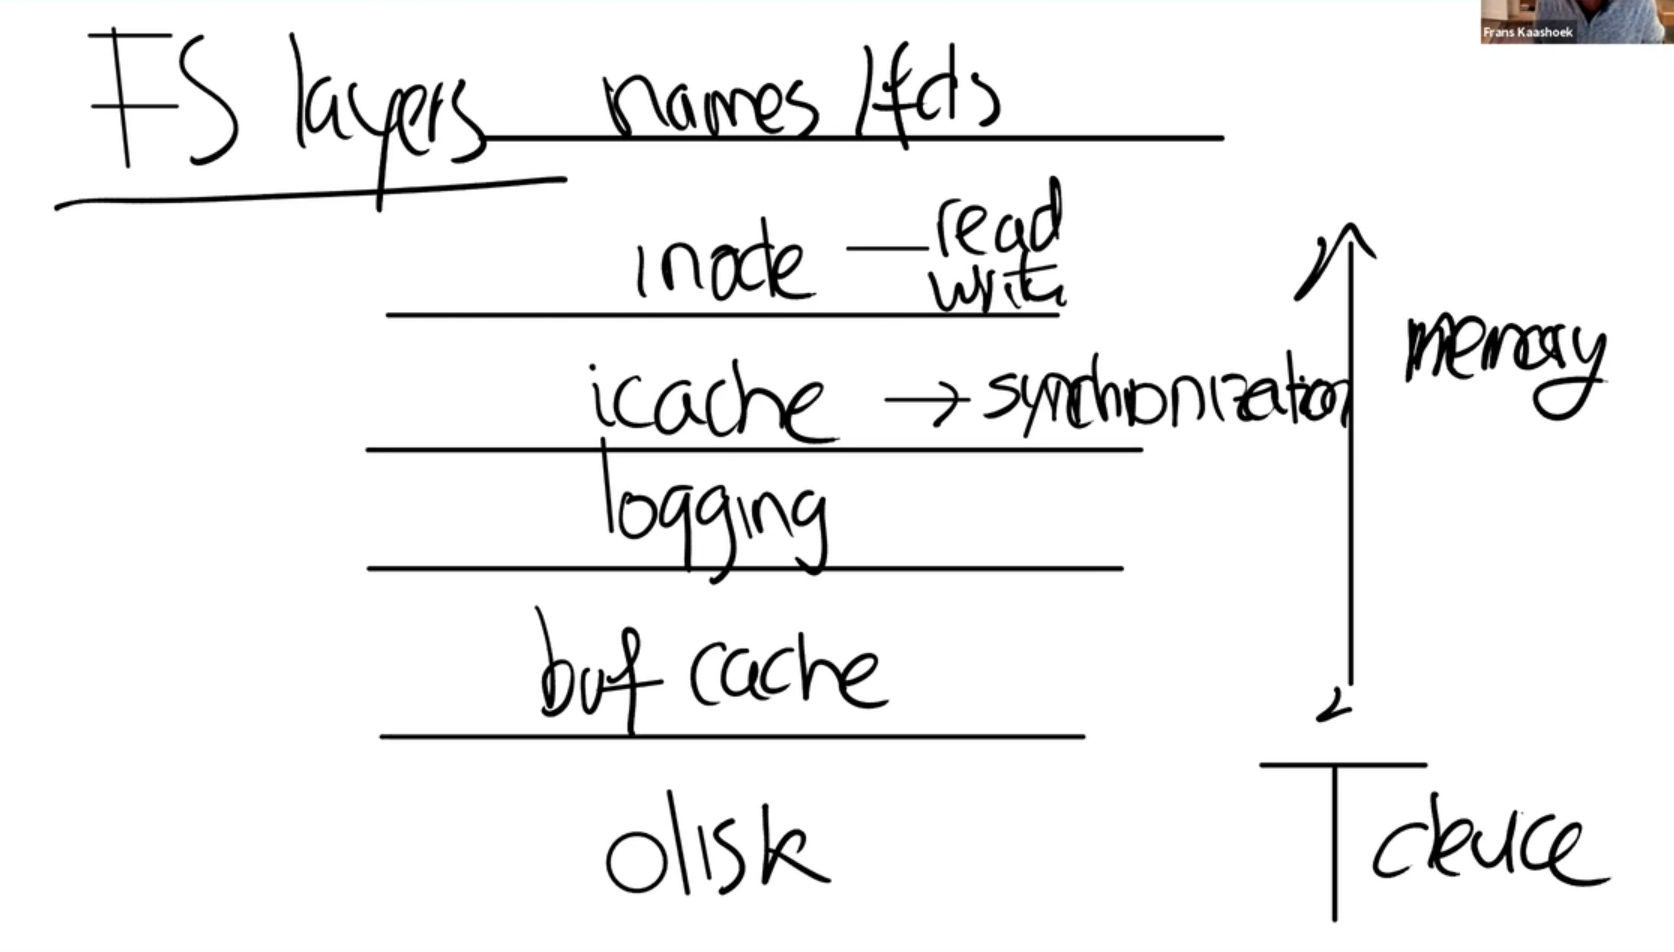 Frans Kaashoek
FS layers names / fds
inode — read
write
icache → synchronization
memory
logging
buf cache
disk
device